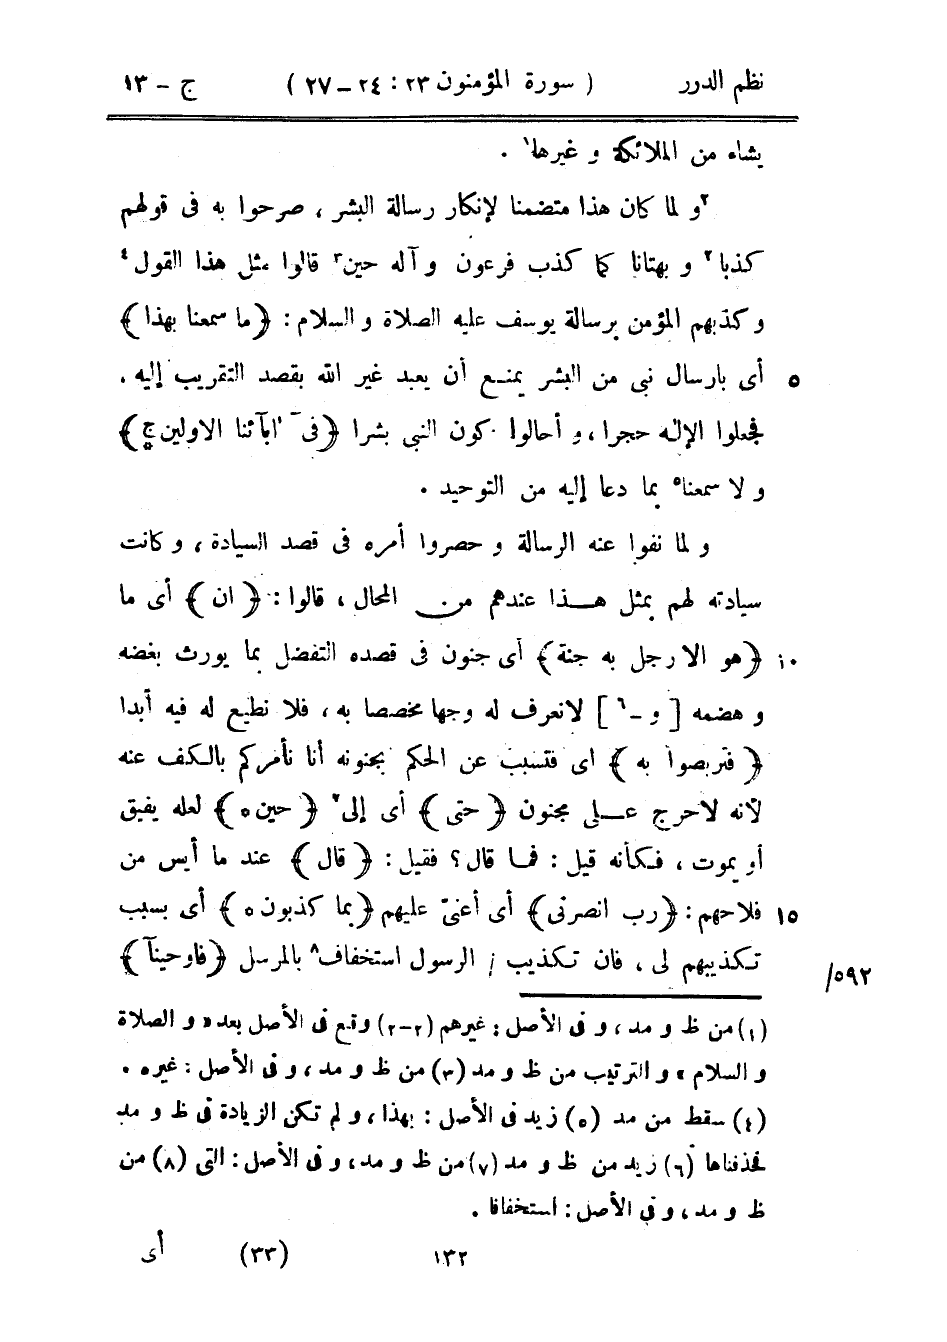 نظم الدرر ( سورة المؤمنون ٢٣ : ٢٤ – ٢٧ ) ج – ١٣
يشاء من الملائكة و غيرها١ .
٢و لما كان هذا متضمنا لإنكار رسالة البشر ، صرحوا به فى قولهم
كذبا٢ و بهتانا كما كذب فرعون و آله حين٣ قالوا مثل هذا القول٤
و كذبهم المؤمن برسالة يوسف عليه الصلاة و السلام : ﴿ ما سمعنا بهذا ﴾
٥ أى بارسال نبى من البشر يمنع أن يعبد غير الله بقصد التقريب إليه ،
فجعلوا الإلٰه حجرا ، و أحالوا كون النبى بشرا ﴿ فىٓ اٰبآئنا الاولين ج ﴾
و لا سمعنا٥ بما دعا إليه من التوحيد .
و لما نفوا عنه الرسالة و حصروا أمره فى قصد السيادة ، و كانت
سيادته لهم بمثل هذا عندهم من المحال ، قالوا : ﴿ ان ﴾ أى ما
١٠ ﴿ هو الا رجل به جنة ﴾ أى جنون فى قصده التفضل بما يورث بغضه
و هضمه [ و -٦ ] لا نعرف له وجها مخصصا به ، فلا نطيع له فيه أبدا
﴿ فتربصوا به ﴾ اى فتسبب عن الحكم بجنونه أنا نأمركم بالكف عنه
لأنه لا حرج على مجنون ﴿ حتى ﴾ أى إلى٧ ﴿ حين ه ﴾ لعله يفيق
أو يموت ، فكأنه قيل : فما قال ؟ فقيل : ﴿ قال ﴾ عند ما أيس من
١٥ فلاحهم : ﴿ رب انصرنى ﴾ أى أعنىّ عليهم ﴿ بما كذبون ه ﴾ أى بسبب
تكذيبهم لى ، فان تكذيب / الرسول استخفاف٨ بالمرسل ﴿ فاوحينآ ﴾ ٥٩٢/
(١) من ظ و مد ، و فى الأصل : غيرهم (٢-٢) وقع فى الأصل بعد « و الصلاة
و السلام » و الترتيب من ظ و مد (٣) من ظ و مد ، و فى الأصل : غيره .
(٤) سقط من مد (٥) زيد فى الأصل : بهذا ، و لم تكن الزيادة فى ظ و مد
فحذفناها (٦) زيد من ظ و مد (٧) من ظ و مد ، و فى الأصل : التى (٨) من
ظ و مد ، و فى الأصل : استخفافا .
١٣٢ (٣٣) أى